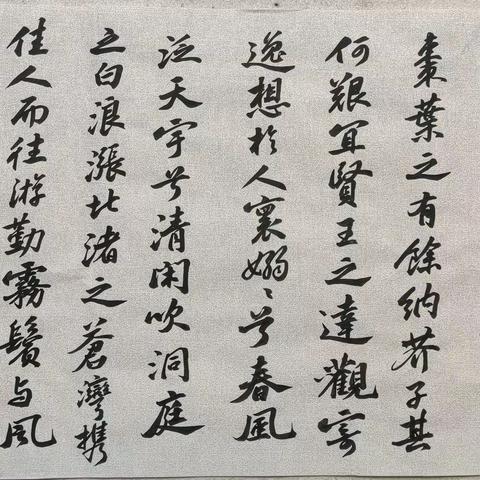 棗葉之有餘納芥子其
何艱宜賢王之達觀寄
逸想於人寰嫋〻兮春風
泛天宇兮清閑吹洞庭
之白浪漲北渚之蒼灣携
佳人而往游勤霧鬢与風